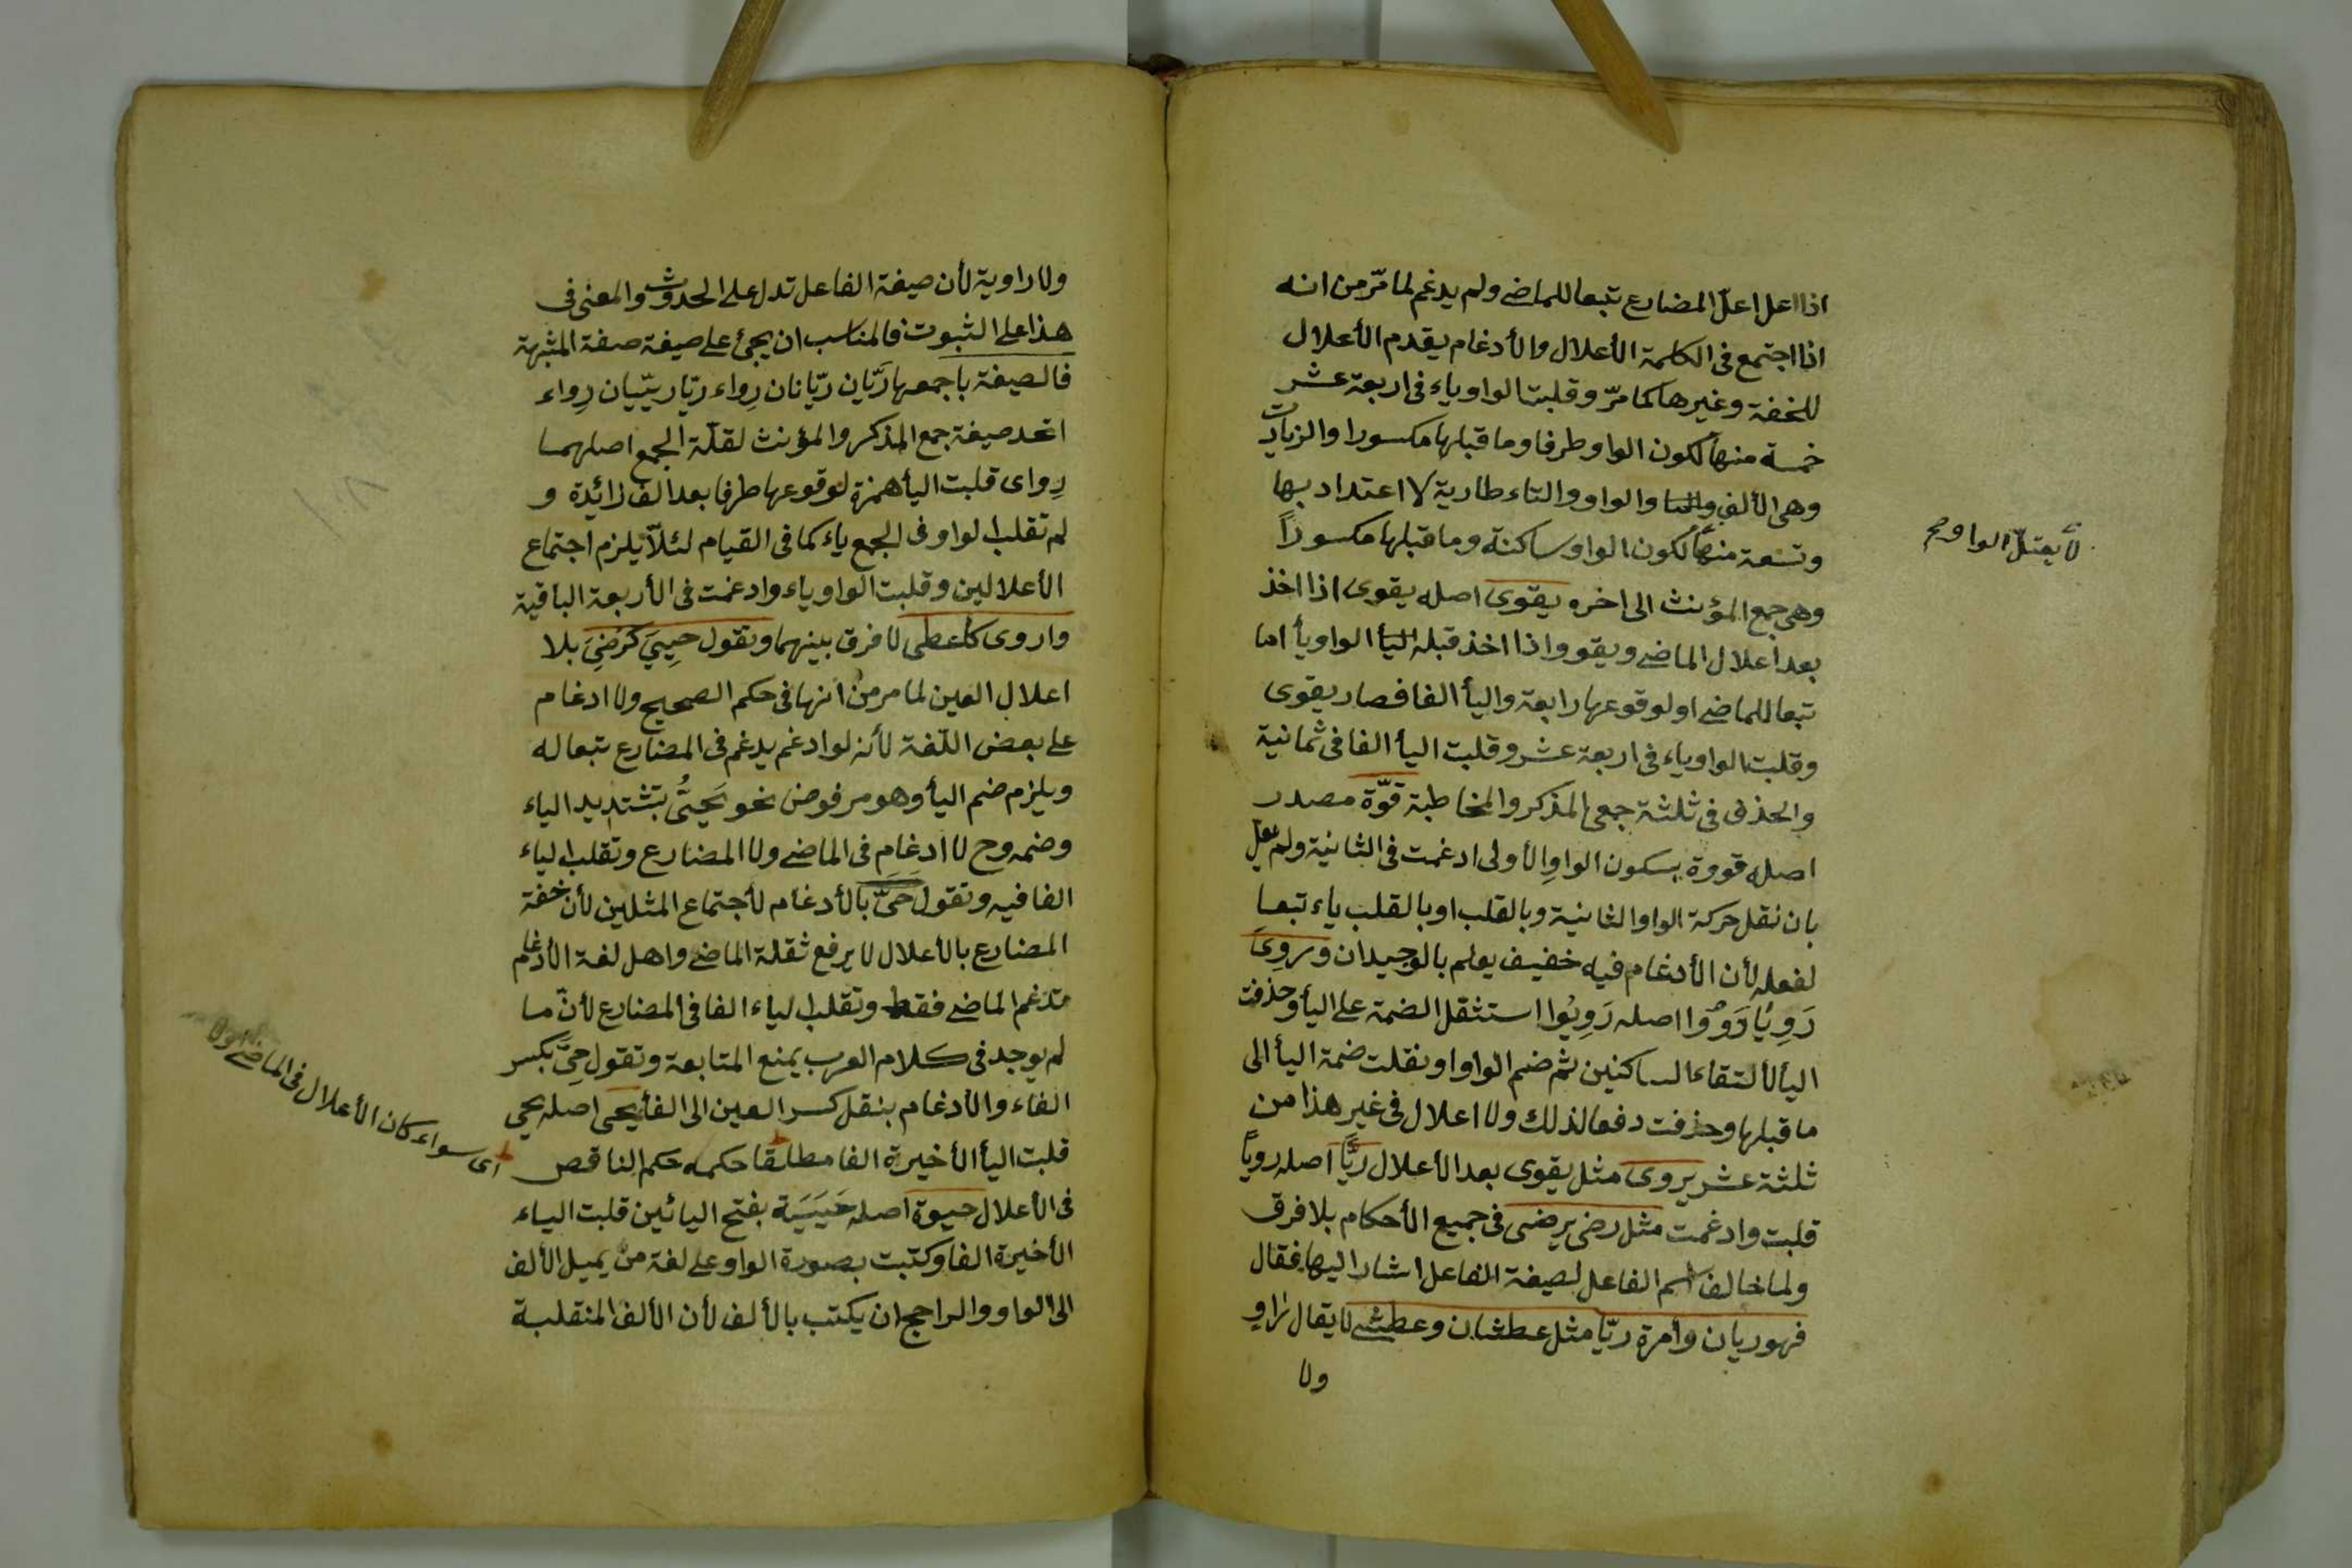 اذا اعل اعلّ المضارع تبعا للماضى ولم يدغم لما مرّ من انه
اذا اجتمع فى الكلمة الأعلال والأدغام يقدم الأعلال
للخفة وغيرها كما مرّ وقلبت الواو ياء فى اربعة عشر
خمسة منها لكون الواو طرفا وما قبلها مكسورا والزيادت
وهى الألف والواو والتاء طارية لا اعتداد بها
وتسعة منها لكون الواو ساكنة وما قبلها مكسوراً
وهى جمع المؤنث الى اخره يقوى اصله يقوى اذا اخذ
بعد اعلال الماضى ويقوو اذا اخذ قبله الواو يأ اما
تبعا للماضى او لوقوعها رابعة واليأ الفا فصار يقوى
وقلبت الواو ياء فى اربعة عشر وقلبت اليأ الفا فى ثمانية
والحذف فى ثلثة جمعى المذكر والمخاطبة قوّة مصدر
اصله قووة بسكون الواو الأولى ادغمت فى الثانية ولم يعل
بان نقل حركة الواو الثانية وبالقلب او بالقلب ياء تبعا
لفعله لأن الأدغام فيه خفيف يعلم بالوجدان وروى
رَوِيَا رَوُوا اصله رَوِيُوا استثقل الضمة على اليأ وحذفت
اليأ لألتقاء الساكنين ثم ضم الواو او نقلت ضمة اليأ الى
ما قبلها وحذفت دفعا لذلك ولا اعلال فى غير هذا من
ثلثة عشر يروى مثل يقوى بعد الأعلال ريًّا اصله روياً
قلبت وادغمت مثل رضى يرضى فى جميع الأحكام بلا فرق
ولما خالف اسم الفاعل لصيغة الفاعل اشار اليها فقال
فهو ريان وأمرة ريّا مثل عطشان وعطشى لا يقال راوٍ
ولا
لا يعتلّ الواو صح
ولا راوية لأن صيغة الفاعل تدل على الحدوث والمعنى فى
هذا على الثبوت فالمناسب ان يجئ على صيغة صفة المشبهة
فالصيغة باجمعها رَيّان ريّانان رِواء ريّا ريّيان رِواء
اتحد صيغة جمع المذكر والمؤنث لقلّة الجمع اصلهما
رِواى قلبت اليأ همزة لوقوعها طرفا بعد الف زائدة و
لم تقلب الواو فى الجمع ياء كما فى القيام لئلّا يلزم اجتماع
الأعلالين وقلبت الواو ياء وادغمت فى الأربعة الباقية
واروى كأعطى لا فرق بينهما وتقول حِيِيَ كرَضِيَ بلا
اعلال العين لما مر من انها فى حكم الصحيح ولا ادغام
على بعض اللّغة لأنه لو ادغم يدغم فى المضارع تبعا له
ويلزم ضم اليأ وهو مرفوض نحو يَحِيُّ بتشديد الياء
وضمه وح لا ادغام فى الماضى ولا المضارع وتقلب الياء
الفا فيه وتقول حَيَّ بالأدغام لأجتماع المثلين لأن خفة
المضارع بالأعلال لا يرفع ثقلة الماضى واهل لغة الأدغام
تدغم الماضى فقط وتقلب الياء الفا فى المضارع لأنّ ما
لم يوجد فى كلام العرب يمنع المتابعة وتقول حِىّ بكسر
الفاء والأدغام بنقل كسر العين الى الفأ يحيى اصله يحيى
قلبت اليأ الأخيرة الفا مطلقا حكمه حكم الناقص
فى الأعلال حيوة اصله حَيَيَة بفتح اليائين قلبت الياء
الأخيرة الفا وكتبت بصورة الواو على لغة من يميل الألف
الى الواو والراجح ان يكتب بالألف لأن الألف المنقلبة
اى سواء كان الأعلال فى الماضى اولا